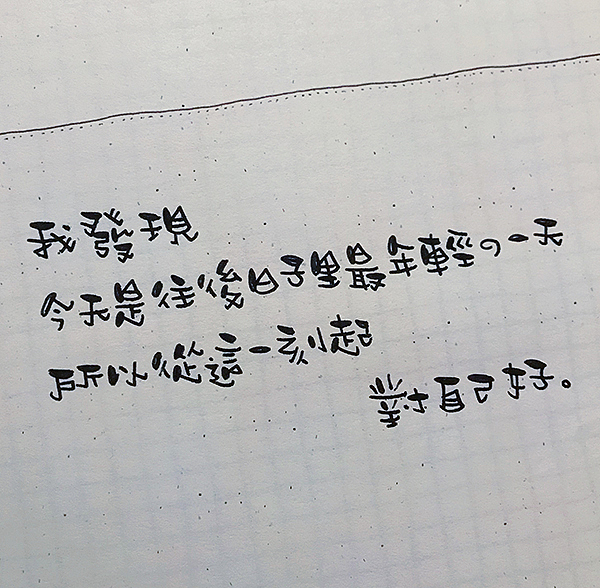 我發現
今天是往後日子里最年輕の一天
所以從這一刻起
對自己好。